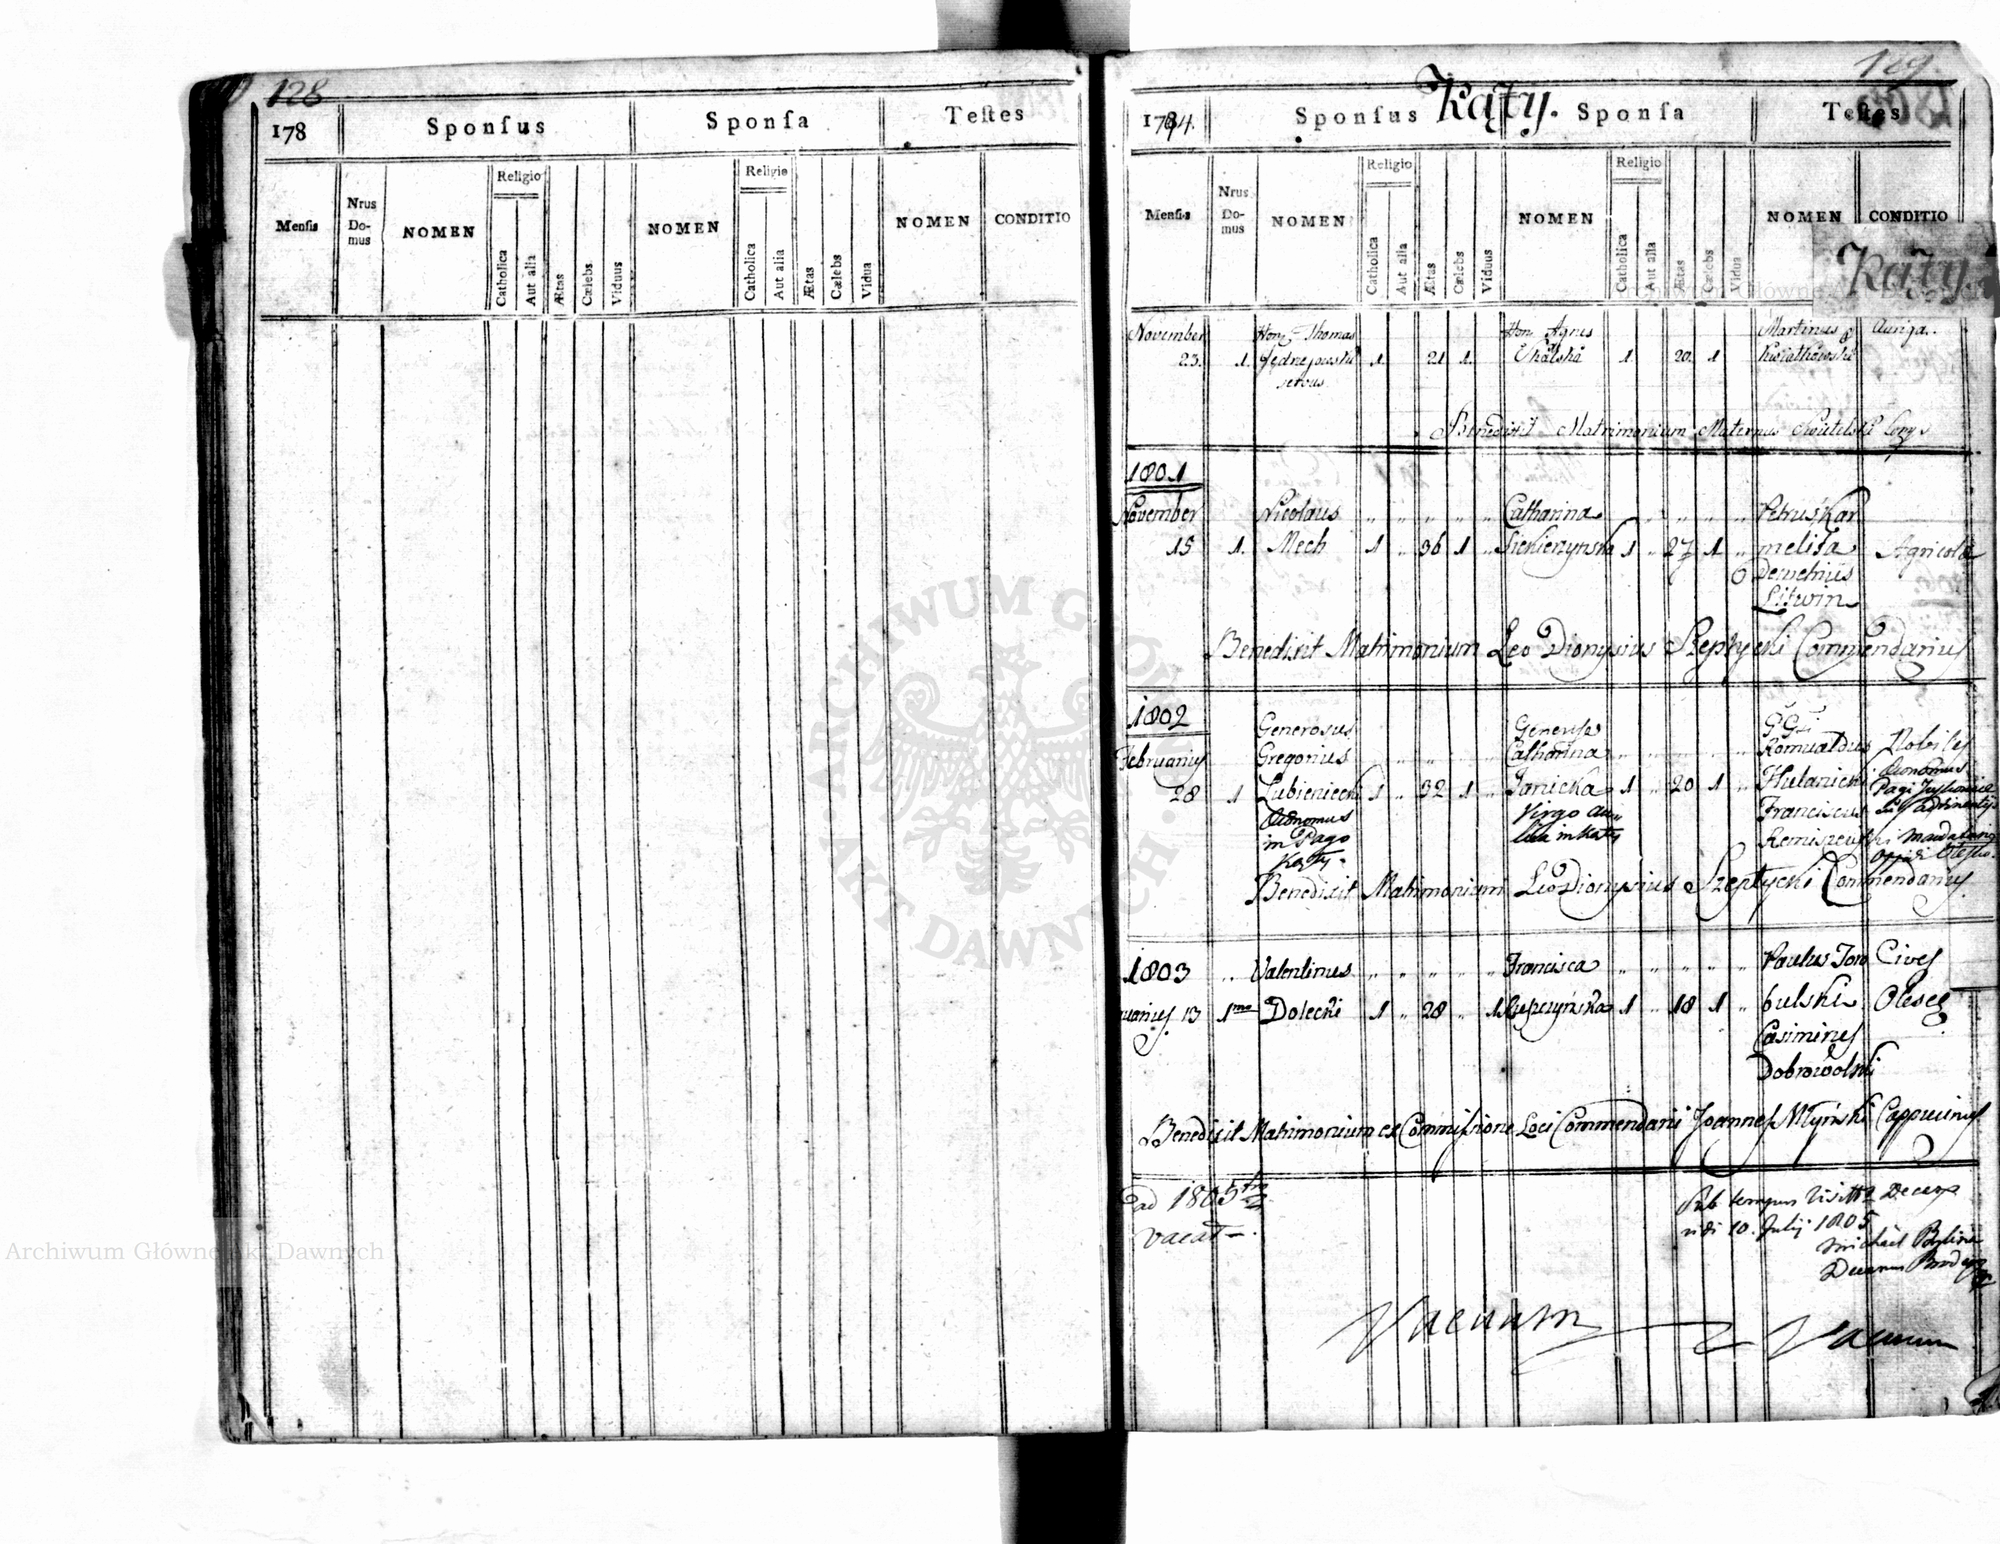 128
178
Sponsus
Sponsa
Testes
Mensis
Nrus Do-mus
NOMEN
Religio
Catholica
Aut alia
Ætas
Cælebs
Viduus
NOMEN
Religio
Catholica
Aut alia
Ætas
Cælebs
Vidua
NOMEN
CONDITIO
129.
Kąty.
1794.
Sponsus
Sponsa
Testes
Mensis
Nrus Do-mus
NOMEN
Religio
Catholica
Aut alia
Ætas
Cælebs
Viduus
NOMEN
Religio
Catholica
Aut alia
Ætas
Cælebs
Vidua
NOMEN
CONDITIO
Kąty
November Hon. Thomas Hon. Agnes Martinus Auriga.
23. 1. 1. 21 1. 1 20 1 Kwiatkowski
servus
Benedixit Matrimonium Maternus
1801
November Nicolaus Catharina Petrus Kar
15 1. Mech 1 36 1 1 27 1 melita Agricola
Demetrius
Litwin
Benedixit Matrimonium Leo Dionysius Szeptycki Commendarius
1802
Generosus Generosa G.G.
Februarius Gregorius Catharina Romualdus Nobiles
28 1 Lubieniecki 1 32 1 Janicka 1 20 1 Hulanicki Œconomus
Œconomus Virgo Franciscus
in Pago in Kąty
Kąty.
Benedixit Matrimonium Leo Dionysius Szeptycki Commendarius.
1803 Valentinus Francisca Paulus Toro Cives
13 1mo Dolecki 1 28 1 1 18 1 bulski Olesc.
Casimirus
Dobrowolski
Benedixit Matrimonium ex Commissione Loci Commendarii Joannes Młyński Cappucinus
ad 1805
vacat.
Sub tempus
10. Julij 1805
Michael
Decanus
Vacuum
Vacuum
ARCHIWUM GŁÓWNE AKT DAWNYCH
Archiwum Główne Akt Dawnych
Archiwum Główne Akt Dawnych